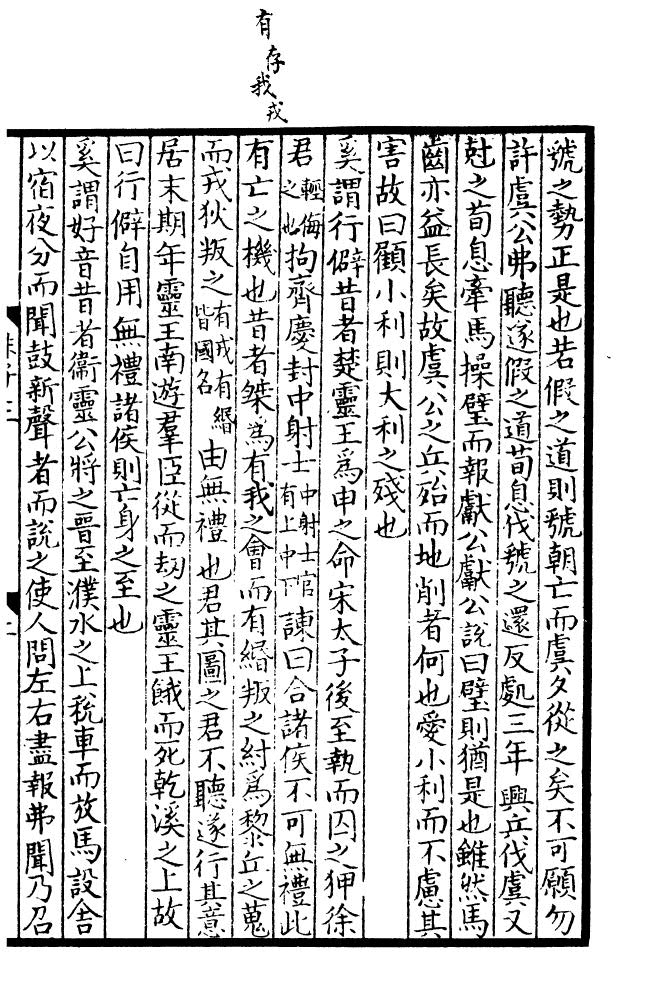 有存我戎
虢之勢正是也若假之道則虢朝亡而虞夕從之矣不可願勿
許虞公弗聽遂假之道荀息伐虢之還反處三年興兵伐虞又
尅之荀息牽馬操璧而報獻公獻公說曰璧則猶是也雖然馬
齒亦益長矣故虞公之兵殆而地削者何也愛小利而不慮其
害故曰顧小利則大利之殘也
奚謂行僻昔者楚靈王爲申之命宋太子後至執而囚之狎徐
君輕侮之也拘齊慶封中射士中射士官有上中下諫曰合諸侯不可無禮此
有亡之機也昔者桀爲有我之會而有緡叛之紂爲黎丘之蒐
而戎狄叛之有戎有緡皆國名由無禮也君其圖之君不聽遂行其意
居未期年靈王南遊羣臣從而刼之靈王餓而死乾溪之上故
曰行僻自用無禮諸侯則亡身之至也
奚謂好音昔者衞靈公將之晉至濮水之上稅車而放馬設舍
以宿夜分而聞鼓新聲者而說之使人問左右盡報弗聞乃召